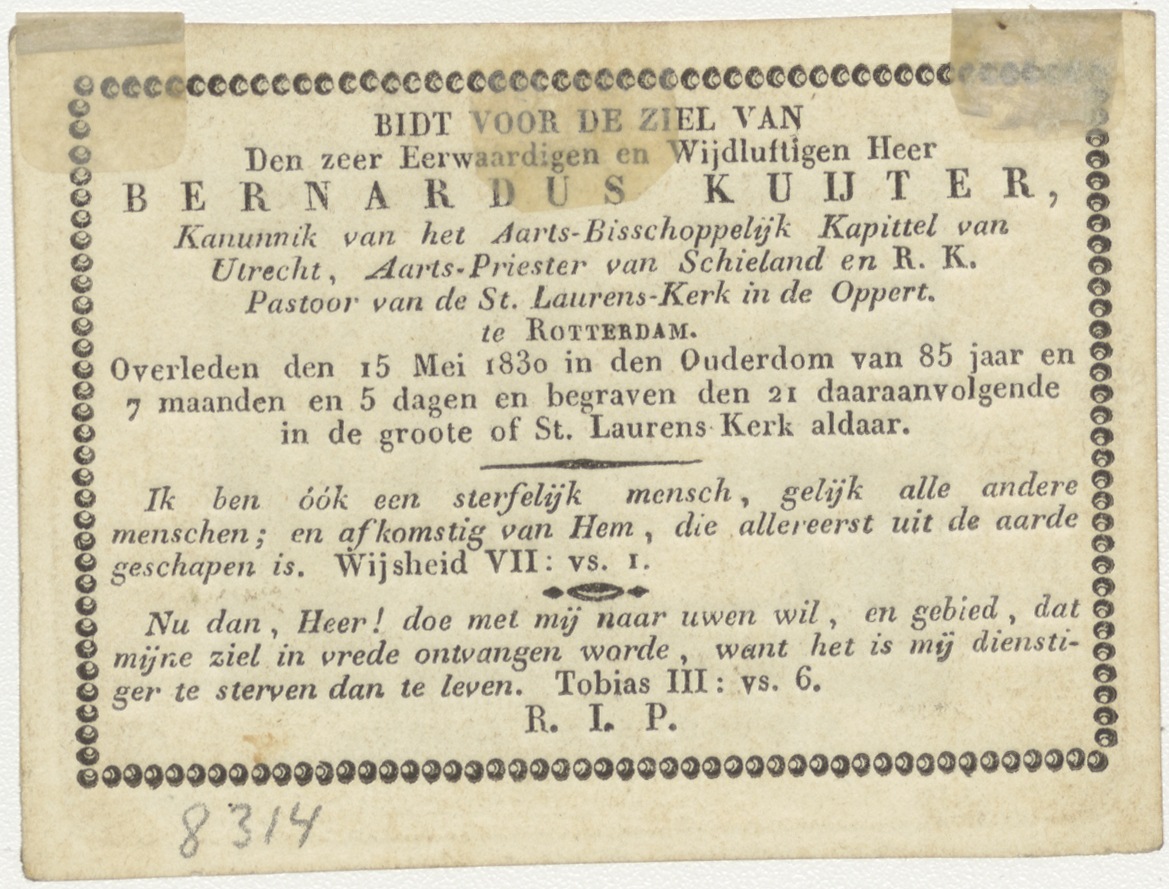 BIDT VOOR DE ZIEL VAN
Den zeer Eerwaardigen en Wijdluftigen Heer
BERNARDUS KUIJTER,
Kanunnik van het Aarts-Bisschoppelijk Kapittel van
Utrecht, Aarts-Priester van Schieland en R. K.
Pastoor van de St. Laurens-Kerk in de Oppert.
te ROTTERDAM.
Overleden den 15 Mei 1830 in den Ouderdom van 85 jaar en
7 maanden en 5 dagen en begraven den 21 daaraanvolgende
in de groote of St. Laurens Kerk aldaar.
Ik ben óók een sterfelijk mensch, gelijk alle andere
menschen; en afkomstig van Hem, die allereerst uit de aarde
geschapen is. Wijsheid VII: vs. 1.
Nu dan, Heer! doe met mij naar uwen wil, en gebied, dat
mijne ziel in vrede ontvangen worde, want het is mij diensti-
ger te sterven dan te leven. Tobias III: vs. 6.
R. I. P.
8314